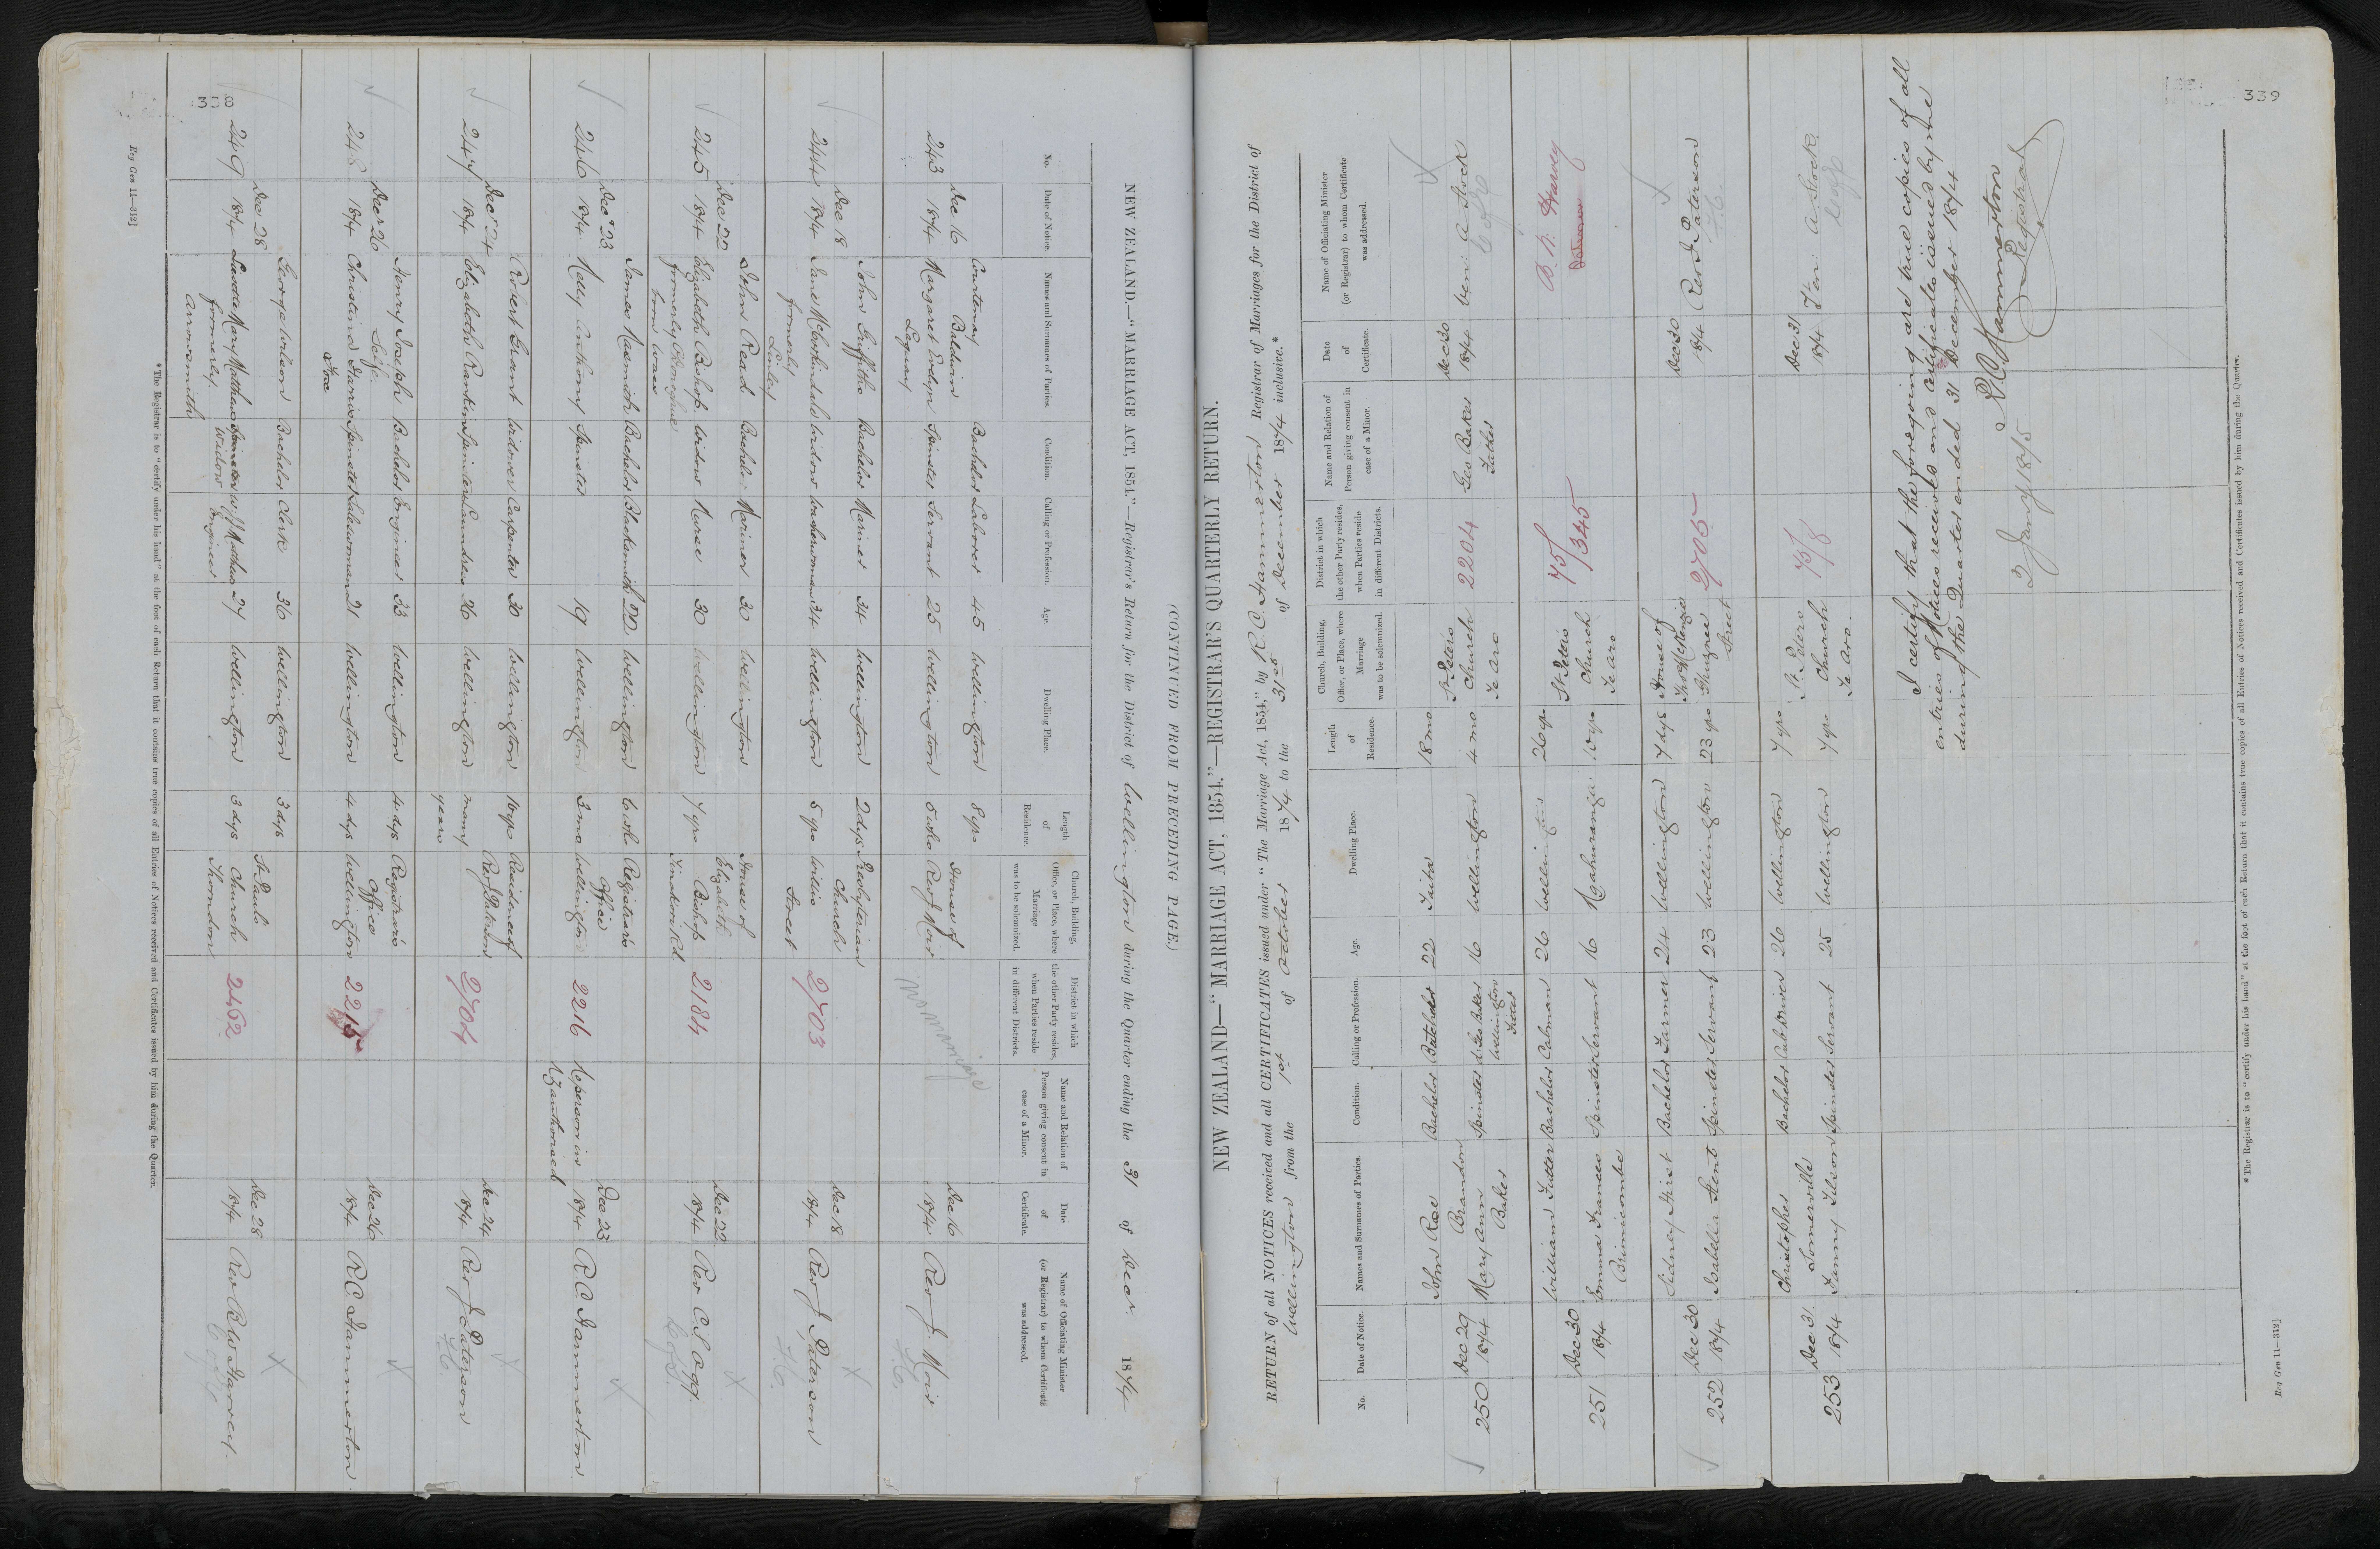 338
(CONTINUED FROM PRECEDING PAGE.)
NEW ZEALAND.—"MARRIAGE ACT, 1854."—Registrar's Return for the District of Wellington during the Quarter ending the 31 of Decr 1874
No.
Date of Notice.
Names and Surnames of Parties.
Condition.
Calling or Profession.
Age.
Dwelling Place.
Length of Residence.
Church, Building, Office, or Place, where Marriage was to be solemnized.
District in which the other Party resides, when Parties reside in different Districts.
Name and Relation of Person giving consent in case of a Minor.
Date of Certificate.
Name of Officiating Minister (or Registrar) to whom Certificate was addressed.
243 Dec 16 1874
Courtenay Baldwin Bachelor Laborer 45 Wellington 8 yrs
Margaret Spinster Servant 25 Wellington 5 wks
House of Rev J. Moir
no marriage
Dec 16 1874 Rev J. Moir
F.C.
244 Dec 18 1874
John Griffiths Bachelor Mariner 34 Wellington 2 dys
Jane formerly Linley Widow Washerwoman 34 Wellington 5 yrs
Presbyterian Church Willis Street
2703
Dec 18 1874 Rev J. Paterson
F.C.
245 Dec 22 1874
John Read Bachelor Mariner 30 Wellington
Elizabeth Bishop Widow Nurse 30 Wellington 7 yrs
House of Elizabeth Bishop Tinakori Rd
2184
Dec 22 1874 Rev C. S. Ogg.
246 Dec 23 1874
James Bachelor Blacksmith 22 Wellington 6 wks
Nelly Anthony Spinster 19 Wellington 3 mo
Registrar's Office Wellington
2216
No person in N.Z. authorised
Dec 23 1874 R C Hammerton
247 Dec 24 1874
Robert Grant Widower Carpenter 30 Wellington 16 yrs
Elizabeth Rankin Spinster Laundress 26 Wellington many years
Residence of Rev J Paterson
2704
Dec 24 1874 Rev J. Paterson
F.C.
248 Dec 26 1874
Henry Joseph Self Bachelor Engineer 23 Wellington 4 dys
Christina Spinster Saleswoman 21 Wellington 4 dys
Registrar's Office Wellington
2215
Dec 26 1874 R C Hammerton
249 Dec 28 1874
George Wilson Bachelor Clerk 36 Wellington 3 dys
Mary Matthews formerly Arrowsmith Widow 27 Wellington 3 dys
St Paul's Church Thorndon
2462
Dec 28 1874 Rev B W Harvey
*The Registrar is to "certify under his hand" at the foot of each Return that it contains true copies of all Entries of Notices received and Certificates issued by him during the Quarter.
Reg Gen 11—312]
339
NEW ZEALAND—"MARRIAGE ACT, 1854."—REGISTRAR'S QUARTERLY RETURN.
RETURN of all NOTICES received and all CERTIFICATES issued under "The Marriage Act, 1854," by R. C. Hammerton Registrar of Marriages for the District of
Wellington from the 1st of October 1874 to the 31st of December 1874 inclusive.*
No.
Date of Notice.
Names and Surnames of Parties.
Condition.
Calling or Profession.
Age.
Dwelling Place.
Length of Residence.
Church, Building, Office, or Place, where Marriage was to be solemnized.
District in which the other Party resides, when Parties reside in different Districts.
Name and Relation of Person giving consent in case of a Minor.
Date of Certificate.
Name of Officiating Minister (or Registrar) to whom Certificate was addressed.
250 Dec 29 1874
John Roe Brandon Bachelor Butcher 22 Taita 18 mo
Mary Ann Baker Spinster d. Geo Baker Wellington 16 Wellington 4 mo
St Peters Church Te Aro
2204
Geo Baker Father
Dec 30 1874 Ven: A Stock
251 Dec 30 1874
William Futter Bachelor Cabman 26 Wellington 26 yrs
Emma Frances Brimicombe Spinster Servant 16 Ngahuranga 10 yrs
St Peters Church Te Aro
75/345
B. W. Harvey
252 Dec 30 1874
Sidney Hirst Bachelor Farmer 24 Wellington 7 dys
Isabella Kent Spinster Servant 23 Wellington 23 yrs
House of Thos McKenzie Ghuznee Street
2705
Dec 30 1874 Rev J Paterson
F.C.
253 Dec 31 1874
Christopher Somerville Bachelor Cab Driver 26 Wellington 7 yrs
Fanny Tilson Spinster Servant 25 Wellington 7 yrs
St. Peters Church Te Aro.
75/8
Dec 31 1874 Ven: A Stock
I certify that the foregoing are true copies of all
entries of Notices received and certificates issued by me
during the Quarter ended 31 December 1874
R C Hammerton
Registrar
2 Jany 1875
*The Registrar is to "certify under his hand" at the foot of each Return that it contains true copies of all Entries of Notices received and Certificates issued by him during the Quarter.
Reg Gen 11—312]